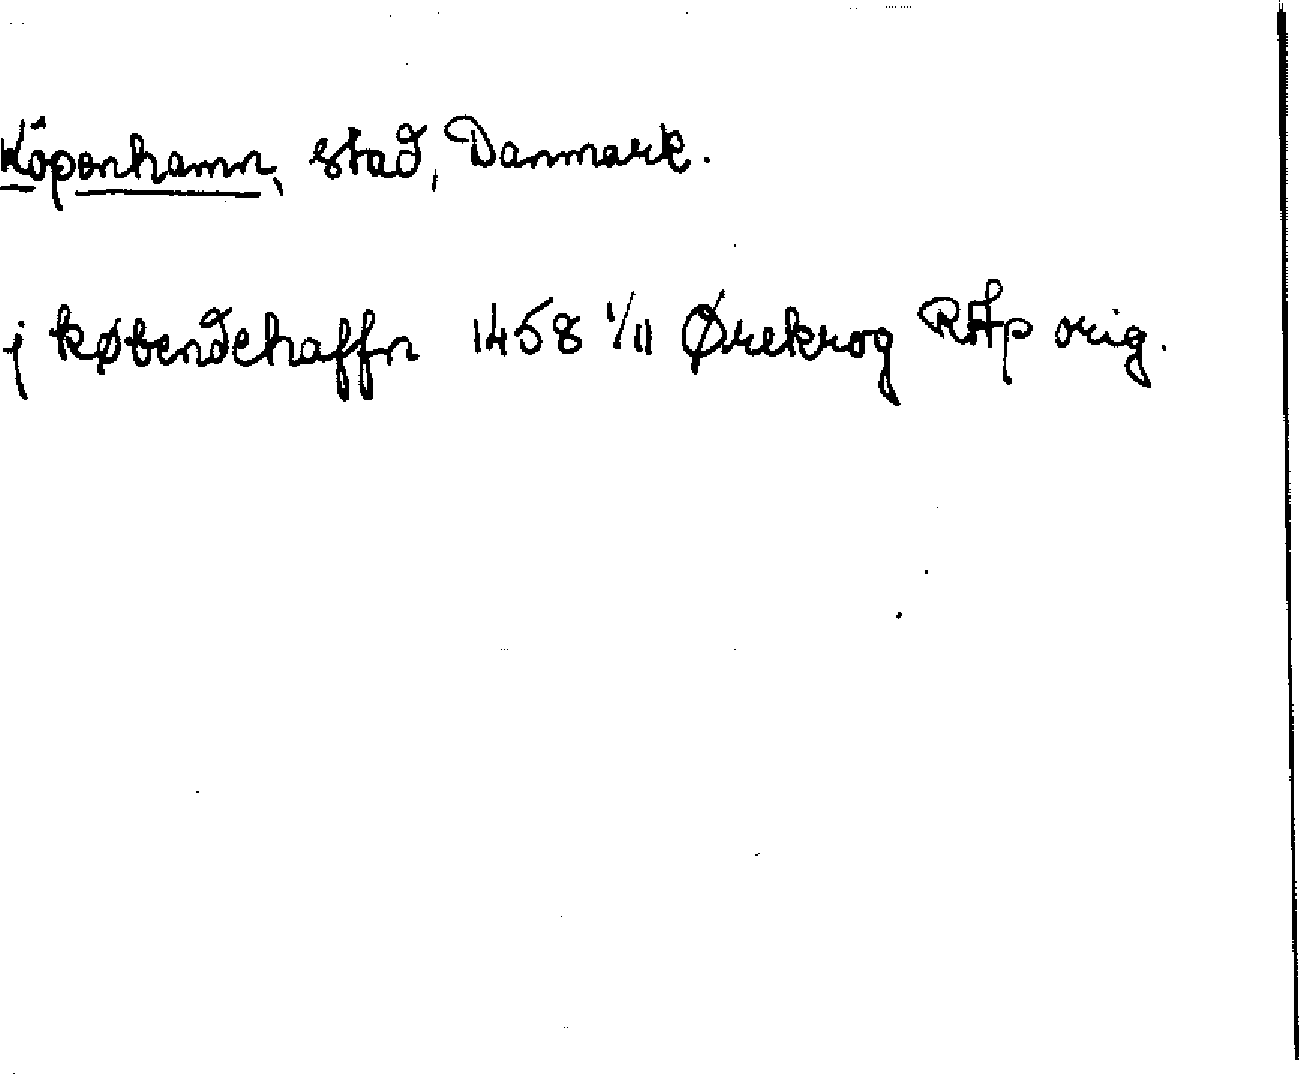 Köpenhamn, stad, Danmark.
j købendehaffn 1458 1/11 Ørekrog RAp orig.